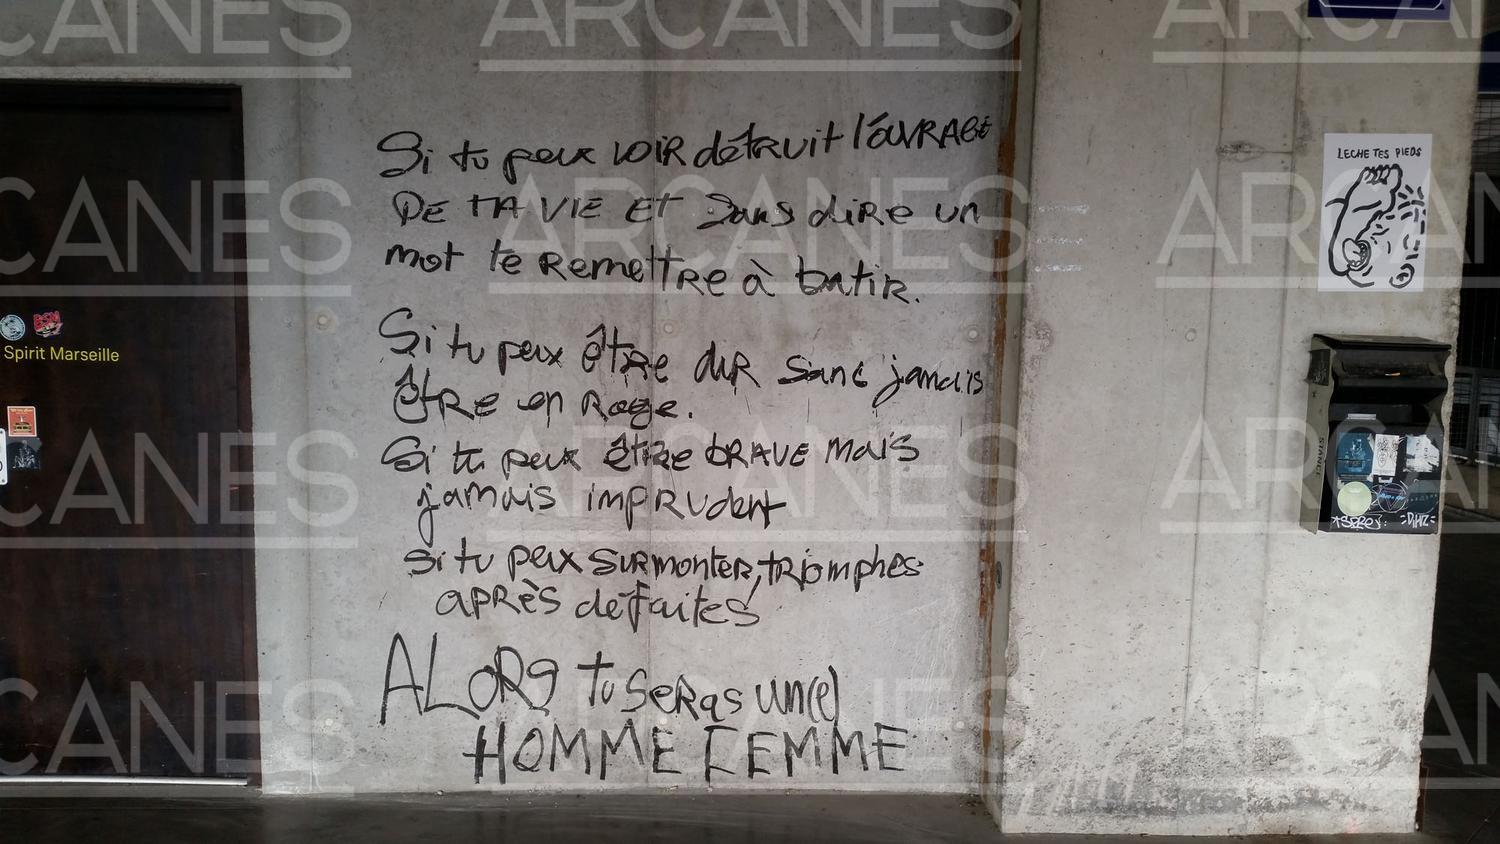 Si tu peux VOIR détruit l'ouvrage
DE TA VIE ET Sans dire un
mot te Remettre à batir.
Si tu peux être dur sans jamais
être en Rage.
Si tu peux être brave mais
jamais imprudent
Si tu peux surmonter, triomphes
après défaites
ALORS tu seras un(e)
HOMME FEMME
LECHE TES PIEDS
BSM
Spirit Marseille
ARCANES